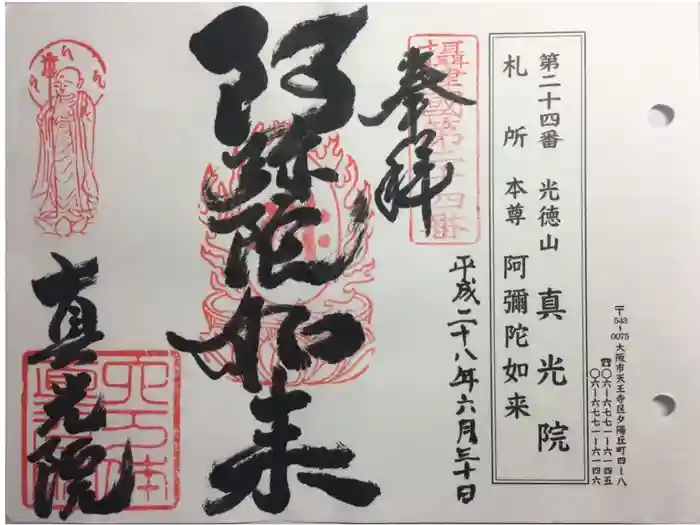 〒543-0075 大阪市天王寺区夕陽丘町四ー八
☎〇六ー六七七一ー六一四五
〇六ー六七七一ー六一四六
第二十四番 光徳山 真光院
札所本尊 阿彌陀如来
奉拝
攝津國第二十四番
平成二十八年六月三十日
阿弥陀如来
真光院